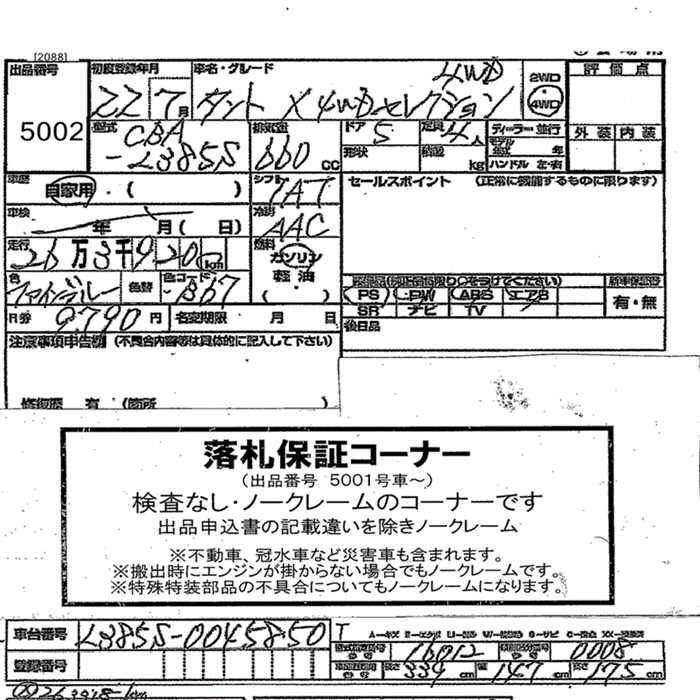 [2088]
出品番号 初度登録年月 車名・グレード 4WD 2WD 評価点
5002 22 7月 タント X 4WDセレクション 4WD
型式 排気量 ドア 5 定員 4人 ディーラー 並行 外装 内装
CBA
-L385S 660 cc 形状 積載 kg モデル年式 年
ハンドル 左・右
車歴 自家用・( ) シフト IAT セールスポイント (正常に機能するものに限ります)
車検 年 月( 日) 冷房 AAC
走行 26万3千920km 燃料 ガソリン
軽油
( ・ )
色 色替 色コード B67
PS PW ABS エアB 有・無
SR ナビ TV
R券 9,790円 名変期限 月 日 後日品
注意事項申告欄 (不具合内容等は具体的に記入して下さい)
修復歴 有 (箇所 )
落札保証コーナー
(出品番号 5001号車~)
検査なし・ノークレームのコーナーです
出品申込書の記載違いを除きノークレーム
※不動車、冠水車など災害車も含まれます。
※搬出時にエンジンが掛からない場合でもノークレームです。
※特殊特装部品の不具合についてもノークレームになります。
車台番号 L385S-0045850 T
16012 0008
登録番号 長さ 339 cm 幅 147 cm 高さ 175 cm